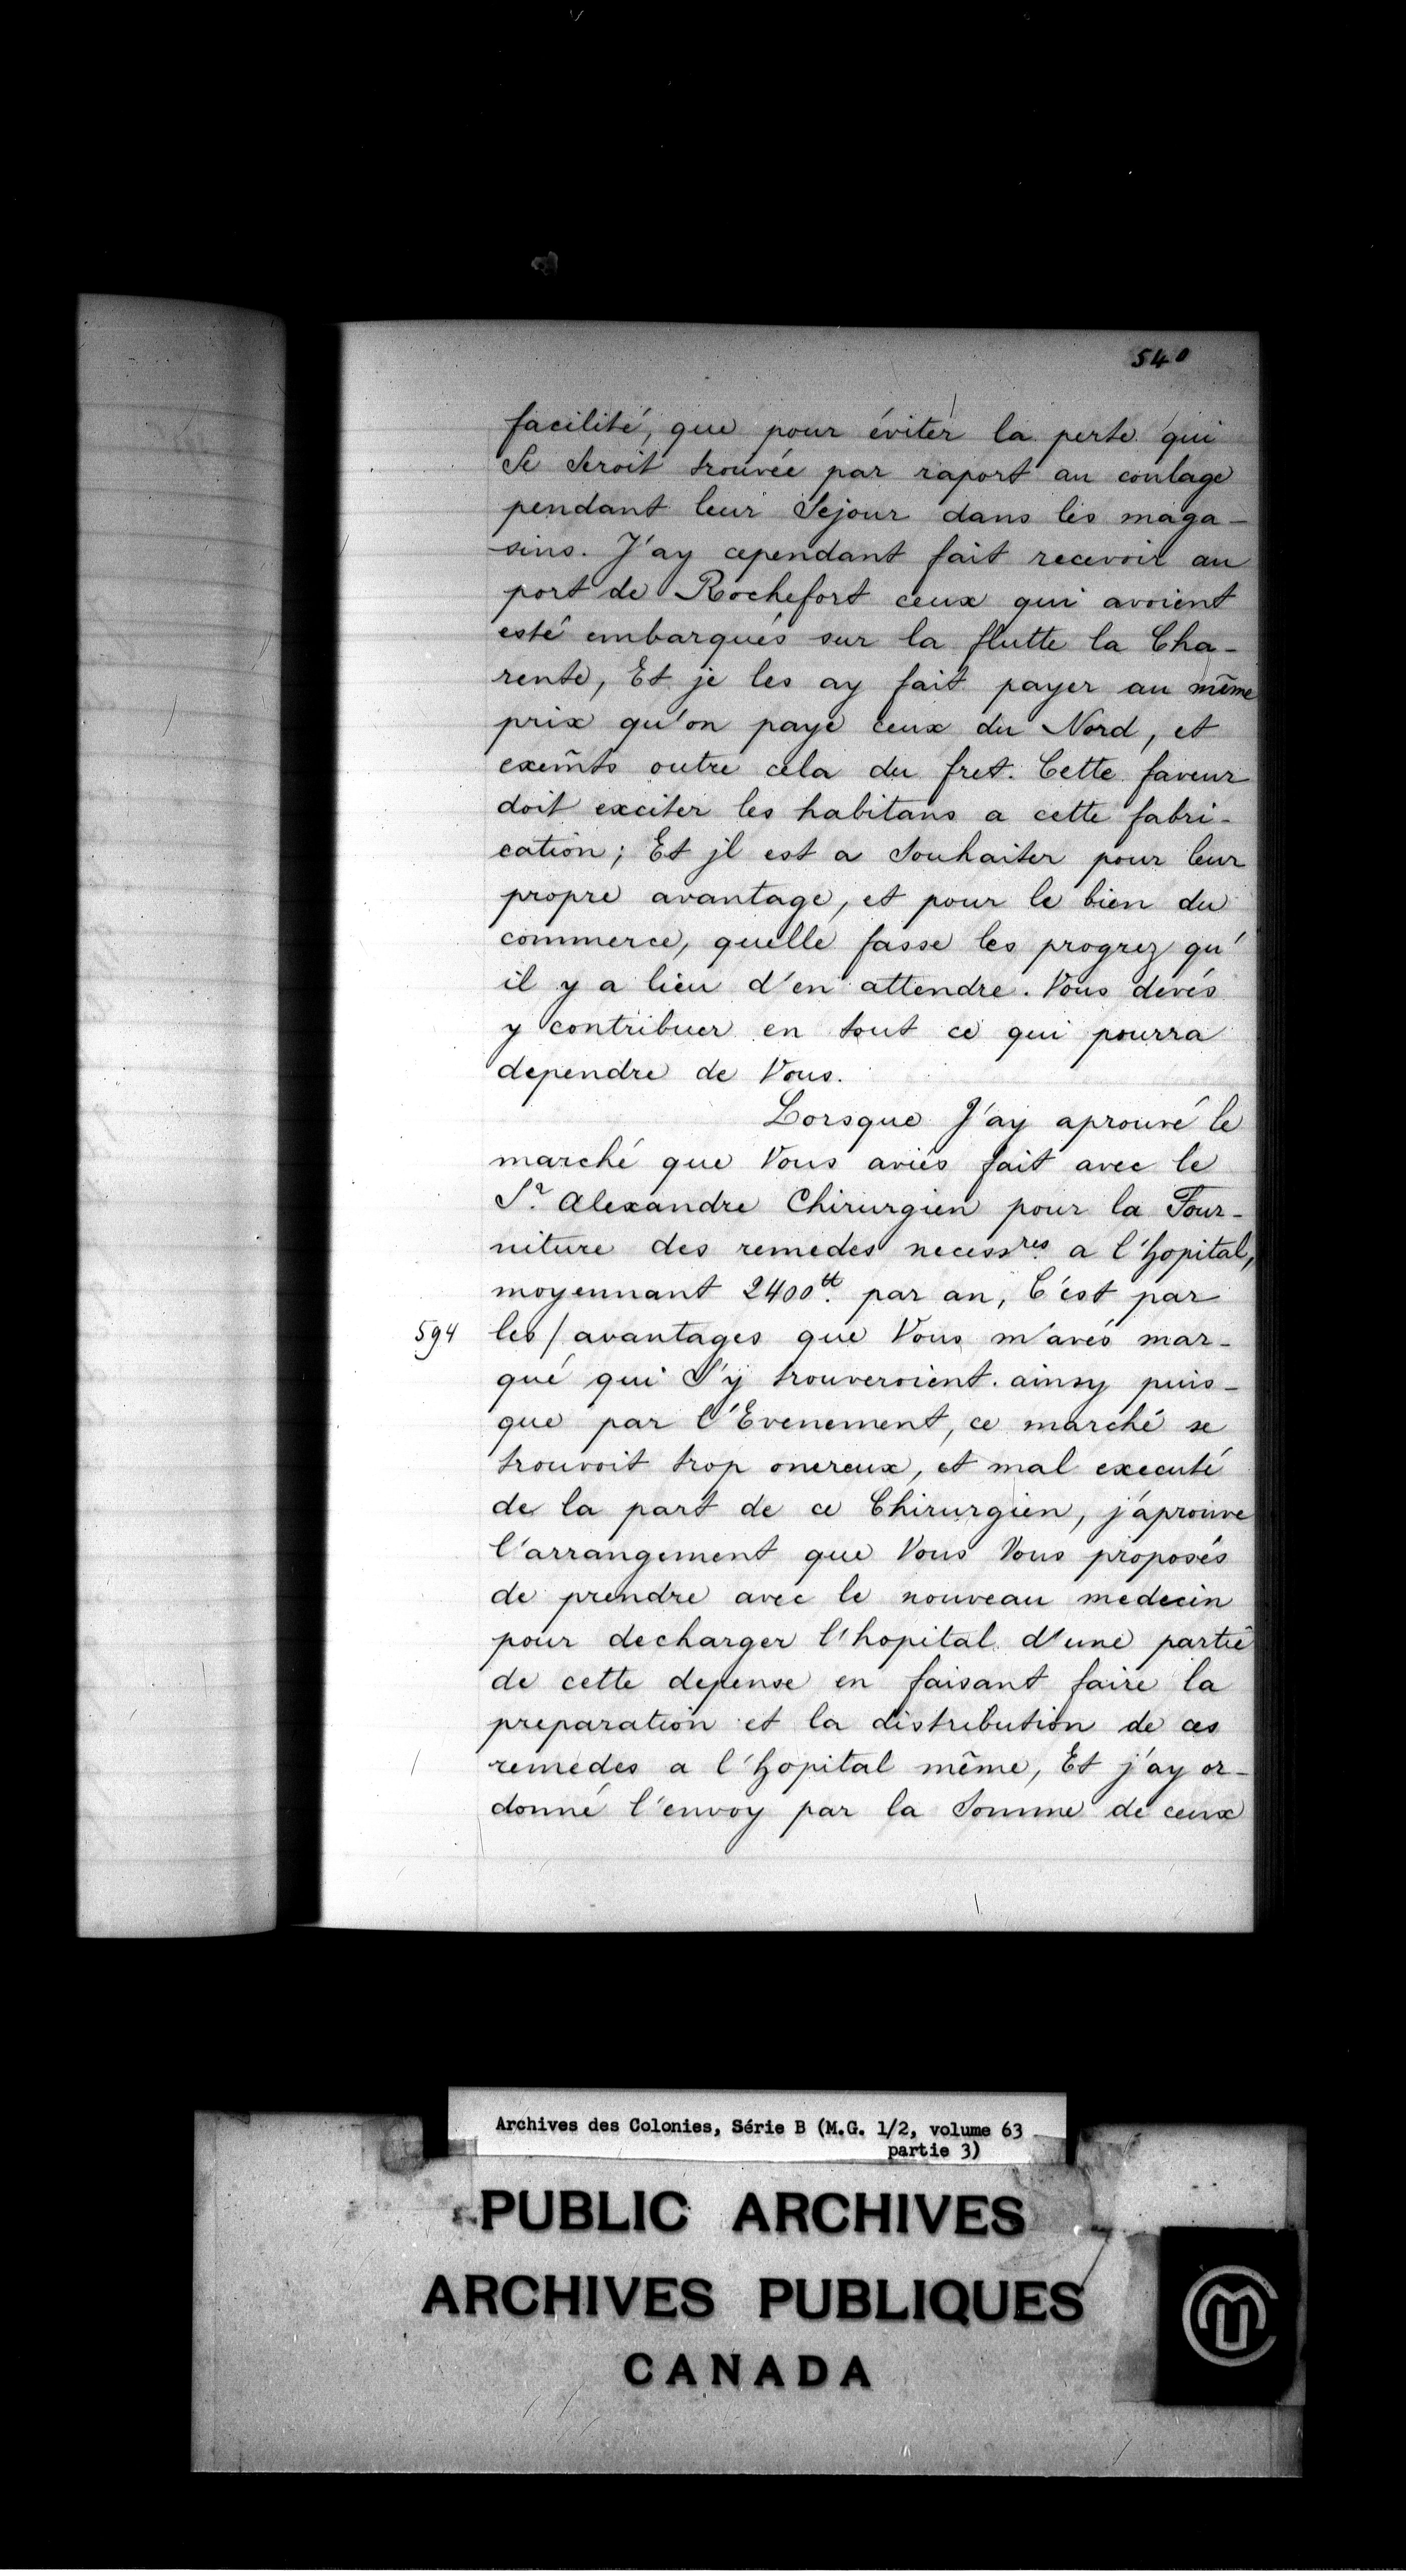 540
facilité, que pour éviter la perte qui
Se Seroit trouvée par raport au coulage
pendant leur Sejour dans les maga-
sins. J'ay cependant fait recevoir au
port de Rochefort ceux qui avoient
esté embarqués sur la flutte la Cha-
rente, Et je les ay fait payer au même
prix qu'on paye ceux du Nord, et
exem̃ts outre cela du fret. Cette faveur
doit exciter les habitans a cette fabri-
cation; Et jl est a Souhaiter pour leur
propre avantage, et pour le bien du
commerce, quelle fasse les progrez qu'
il y a lieu d'en attendre. Vous devés
y contribuer en tout ce qui pourra
dependre de Vous.
Lorsque J'ay aprouvé le
marché que Vous aviés fait avec le
Sr. Alexandre Chirurgien pour la Four-
niture des remedes necessres a l'hopital,
moyennant 2400tt. par an, C'est par
594 les / avantages que Vous m'avés mar-
qué qui S'y trouveroient. ainsy puis-
que par l'Evenement, ce marché se
trouvoit trop onereux, et mal executé
de la part de ce Chirurgien, j'aprouve
l'arrangement que Vous Vous proposés
de prendre avec le nouveau medecin
pour decharger l'hopital d'une partie
de cette depense en faisant faire la
preparation et la distribution de ces
remedes a l'hopital même, Et j'ay or-
donné l'envoy par la Somme de ceux
Archives des Colonies, Série B (M.G. 1/2, volume 63
partie 3)
PUBLIC ARCHIVES
ARCHIVES PUBLIQUES
CANADA